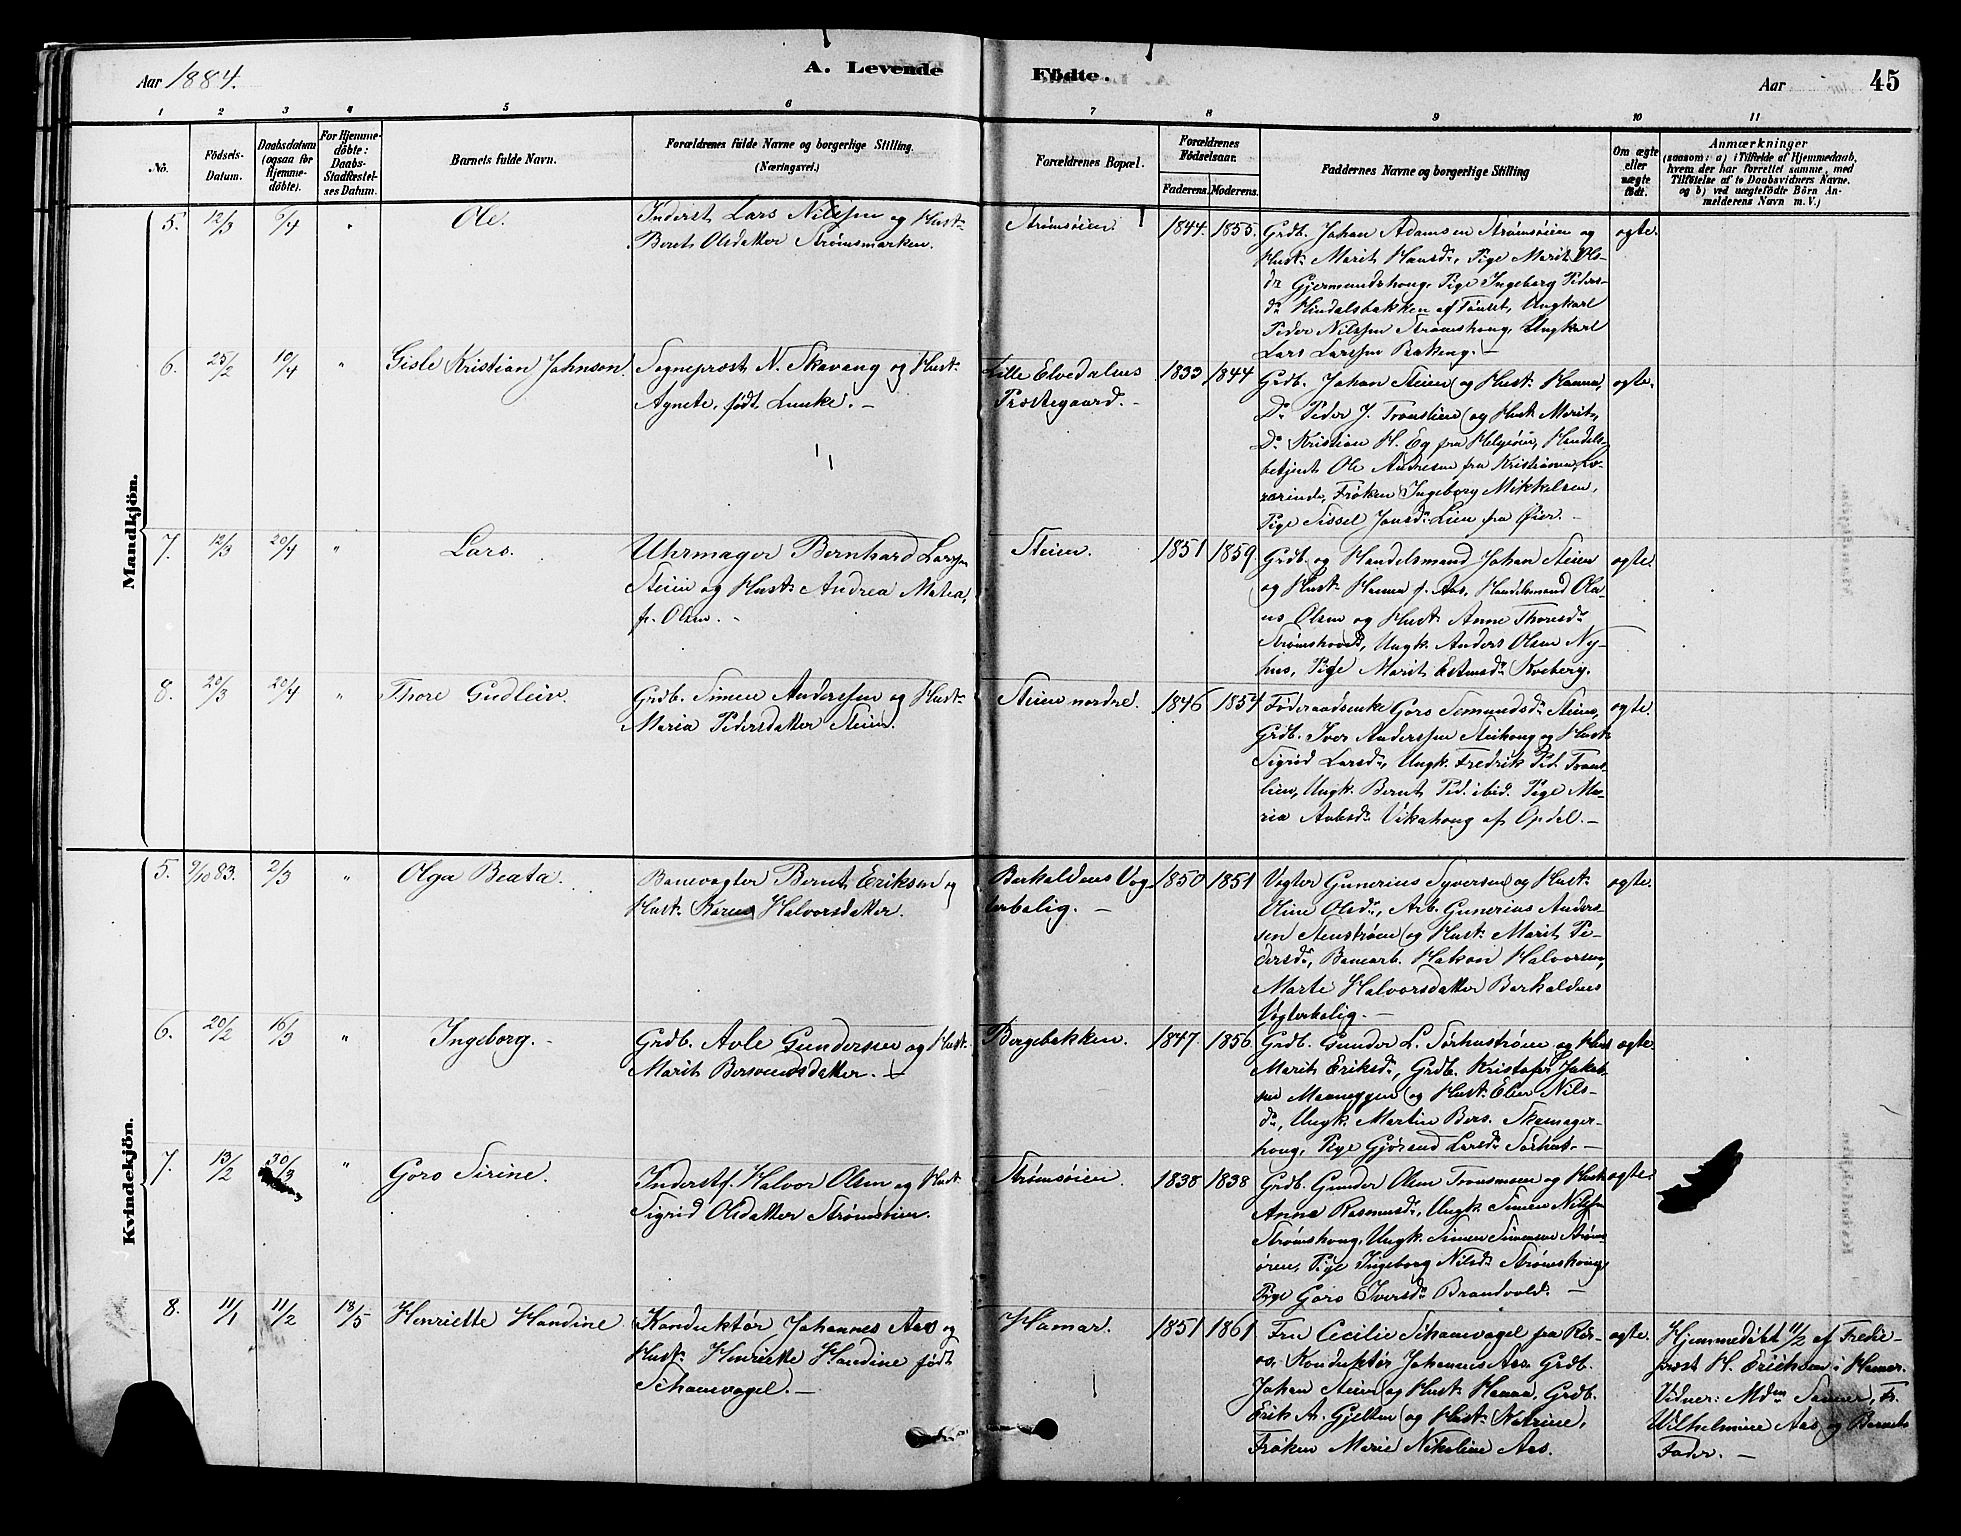 Aar 1884.
A. Levende Födte.
Aar
45
1 2 3 4 5 6 7 8 9 10 11
No.
Födsels-Datum.
Daabsdatum (ogsaa for Hjemmedöbte).
For Hjemmedöbte: Daabs-Stadfæstelses Datum.
Barnets fulde Navn.
Forældrenes fulde Navne og borgerlige Stilling.
(Næringsvei.)
Forældrenes Bopæl.
Forældrenes Födselsaar.
Faderens. Moderens.
Faddernes Navne og borgerlige Stilling
Om ægte eller uægte födt.
Anmærkninger
(saasom: a) i Tilfælde af Hjemmedaab,
hvem der har forrettet samme, med
Tilföielse af to Daabsvidners Navne,
og b) ved uægtefödte Börn An-
melderens Navn m. V.)
Mandkjön.
5. 12/3 6/4 " Ole.
Inderst Lars Nilssen og Hust.
Berit Olsdatter Strømsmarken.
Strømsöien.
1844. 1855.
Grdb. Johan Adamsen Strømsöien og
Hust. Marit Hansd., Pige Marit Ols-
dr Gjermundshoug, Pige Ingeborg Peders-
dr Hindalsbakken af Tönset, Ungkarl
Peder Nilssen Strømshoug, Ungkarl
Lars Larssen Bakeng. —
ægte.
6. 25/2 10/4 " Gisle Kristian Johnson.
Sogneprest N. Skavang og Hust.
Agnete, født Lunke. —
Lille Elvedalens
Præstegaard. —
1833 1844
Grdb. Johan Steien og Hust. Hanna,
Do Peder J. Tronslien og Hust. Marit,
Do Kristian H. Eg fra Helgeöen, Handels-
betjent Ole Andresen fra Kristiania,
Frøken Ingeborg Mikkelsen,
Pige Sissel Jansd. Lien fra Öier. —
ægte.
7. 12/3 20/4 " Lars.
Uhrmager Bernhard Larssen
Steien og Hust. Andrea Matea,
f. Olsen. —
Steien.
1851 1859
Grdb. og Handelsmand Johan Steien
og Hust. Hanna f. Aas, Handelsmand Ola-
us Olsen og Hust. Anne Thoresd.
Strømshoved, Ungk. Anders Olsen Ny-
hus, Pige Marit Estensd. Kveberg.
ægte.
8. 20/3 20/4 " Thore Gudleiv.
Grdb. Simen Anderssen og Hust.
Maria Pedersdatter Steien.
Steien nordre.
1846 1854
Föderaadsenke Goro Semundsd. Steien,
Grdb. Iver Anderssen Steihoug og Hust.
Sigrid Larsd., Ungk. Fredrik Ped. Trons-
lien, Ungk. Bernt Ped. ibid. Pige Ma-
ria Avlesd. Vikahoug af Opdal. —
ægte.
Kvindekjön.
5. 9/10 83. 2/3 " Olga Beata.
Banevogter Bernt Eriksen og
Hust. Karen Halvorsdatter.
Barkaldens Vog-
terbolig. —
1850 1851
Vogter Gunerius Syversen og Hust.
Oline Olsd., Arb. Gunerius Anders-
sen Stenströen og Hust. Marit Pe-
dersd., Banearb. Hakon Halvorsen,
Marte Halvorsdatter Barkaldens
Vogterbolig. —
ægte.
6. 20/2 16/3 " Ingeborg. —
Grdb. Avle Gundersen og Hust.
Marit Bersvendsdatter. —
Bergebakken.
1847. 1856.
Grdb. Gunder L. Sörhuströen og Hust
Marit Eriksd., Grdb. Kristofer Jakob-
sen Maaneggen og Hust. Elen Nils-
dr, Ungk. Martin Bers. Skomager-
houg, Pige Gjörond Larsd. Sörhus. —
ægte.
7. 13/2 30/3 " Goro Sirine.
Inderst f. Halvor Olsen og Hust.
Sigrid Olsdatter Strømsöien.
Strømsöien.
1838 1838
Grdb. Gunder Olsen Tronsmoen og Hust.
Anne Rasmusd., Ungk. Simen Nilssen
Strømshoug, Ungk. Simen Simensen Ström-
ören, Pige Ingeborg Nilsd. Strømshoug,
Pige Goro Iversd. Brandvold. —
ægte.
8. 11/1 11/2 18/5 Henriette Handine
Konduktör Johannes Aas og
Hust. Henriette Handine født
Schanvogel. —
Hamar.
1851 1861
Fru Cecilie Schanvogel fra Rör-
os, Konduktör Johannes Aas, Grdb.
Johan Steien og Hust. Hanna, Grdb.
Erik A. Gjelten og Hust. Natrine,
Frøken Marie Nikoline Aas.
ægte.
Hjemmedöbt 11/2 af Stifts-
prost H. Erichsen i Hamar.
Vidner: Mdm Sanner, Fr.
Wilhelmine Aas og Barnets
Fader. —